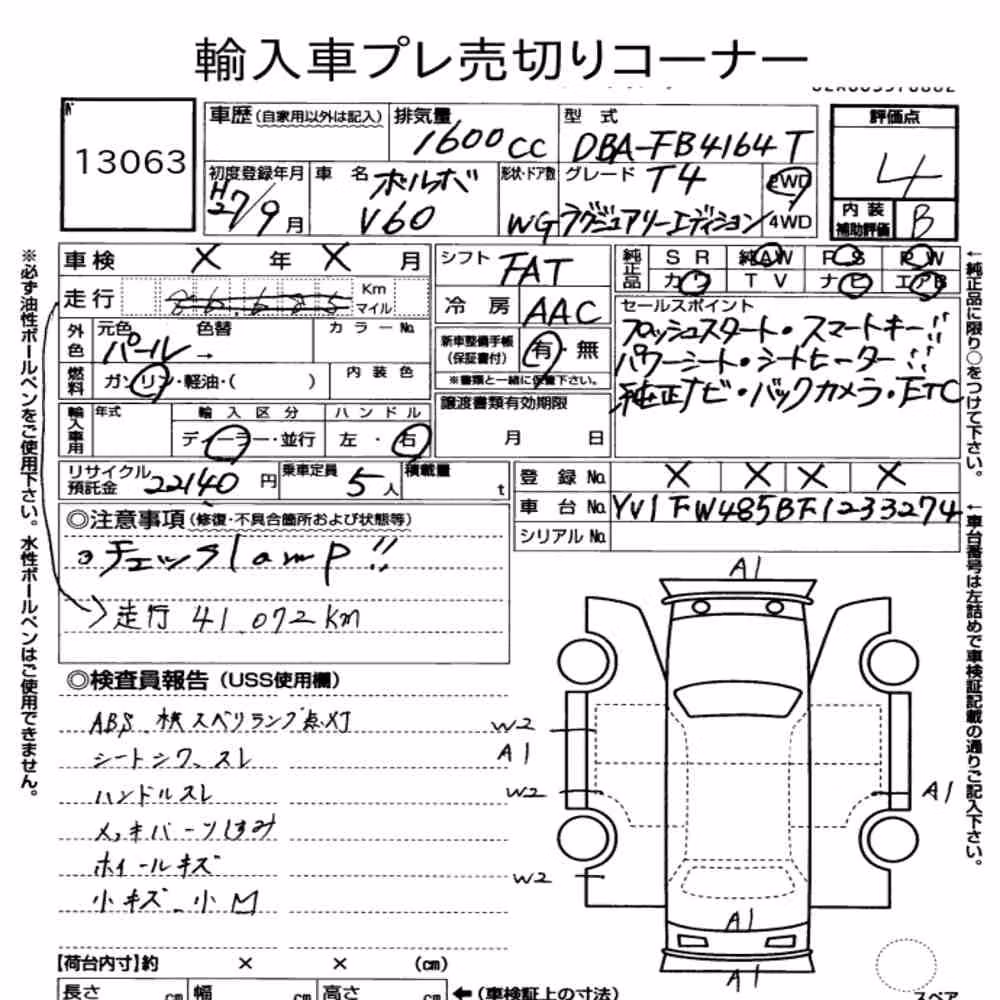 輸入車プレ売切りコーナー
13063
車歴(自家用以外は記入)
排気量
1600cc
型式
DBA-FB4164T
評価点
4
初度登録年月
H27/9月
車名
ボルボ
V60
形状・ドア数
WG
グレード
T4
ラグジュアリーエディション
2WD
4WD
内装
補助評価
B
※必ず油性ボールペンをご使用下さい。水性ボールペンはご使用できません。
車検 × 年 × 月
走行
Km
マイル
シフト
FAT
冷房
AAC
純正品
S R
純AW
P S
P W
カワ
T V
ナビ
エアB
外色
元色
パール→
色替
カラーNo.
燃料
ガソリン・軽油・( )
内装色
新車整備手帳
(保証書付)
有・無
※書類と一緒に保管下さい。
セールスポイント
プッシュスタート・スマートキー!!
パワーシート・シートヒーター!!
純正ナビ・バックカメラ・ETC
輸入車用
年式
輸入区分
ディーラー・並行
ハンドル
左・右
譲渡書類有効期限
月 日
リサイクル
預託金
22140円
乗車定員
5人
積載量
t
登録No. × × × ×
車台No. YV1FW485BF1233274
シリアルNo.
←純正品に限り○をつけて下さい。
←車台番号は左詰めで車検証記載の通りご記入下さい。
◎注意事項(修復・不具合箇所および状態等)
チェックlamp!!
走行 41,072Km
◎検査員報告(USS使用欄)
シートシワ、スレ
ハンドルスレ
ホイールキズ
小キズ、小凹
A1
W2
A1
W2
A1
W2
A1
A1
【荷台内寸】約 × × (cm)
長さ cm 幅 cm 高さ cm ←(車検証上の寸法)
スペア